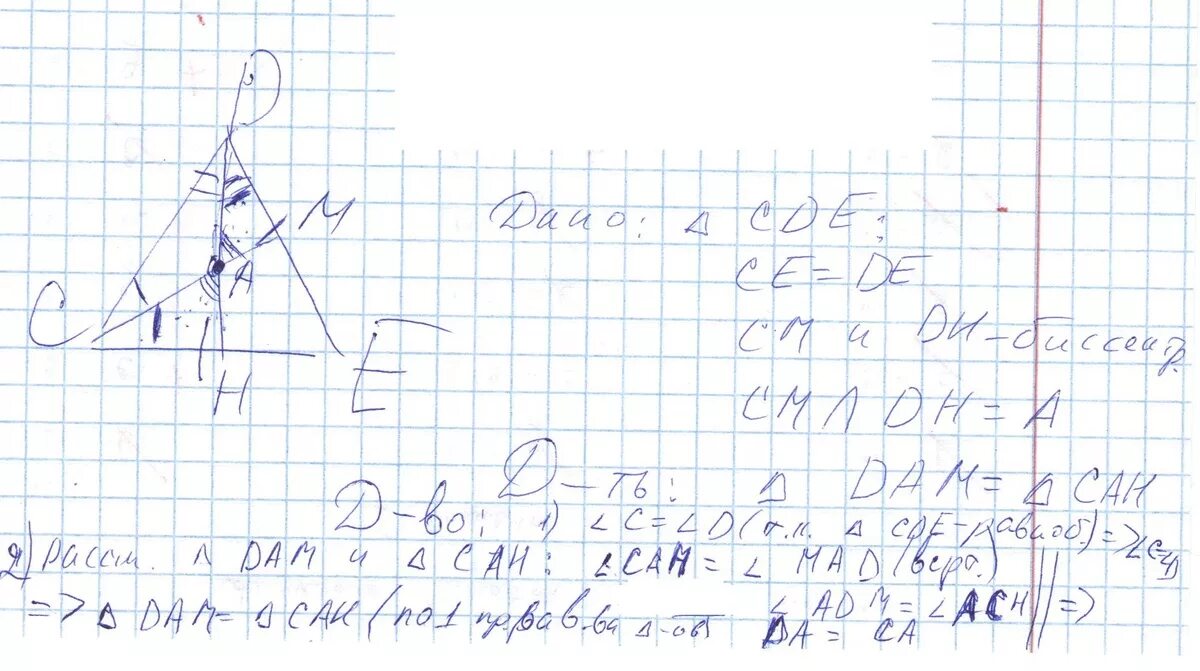 D
M
A
C
H
E
Дано: Δ CDE;
CE = DE
CM и DH - биссектр.
CM ∩ DH = A
Д-ть: Δ DAM = Δ CAH
Д-во: 1) ∠C = ∠D (т.к. Δ CDE - равноб.) => ∠C=∠D
2) Рассм. Δ DAM и Δ CAH: ∠CAH = ∠MAD (верт.)
∠ADM = ∠ACH =>
DA = CA
=> Δ DAM = Δ CAH (по 1 пр. рав-ва Δ-ов)